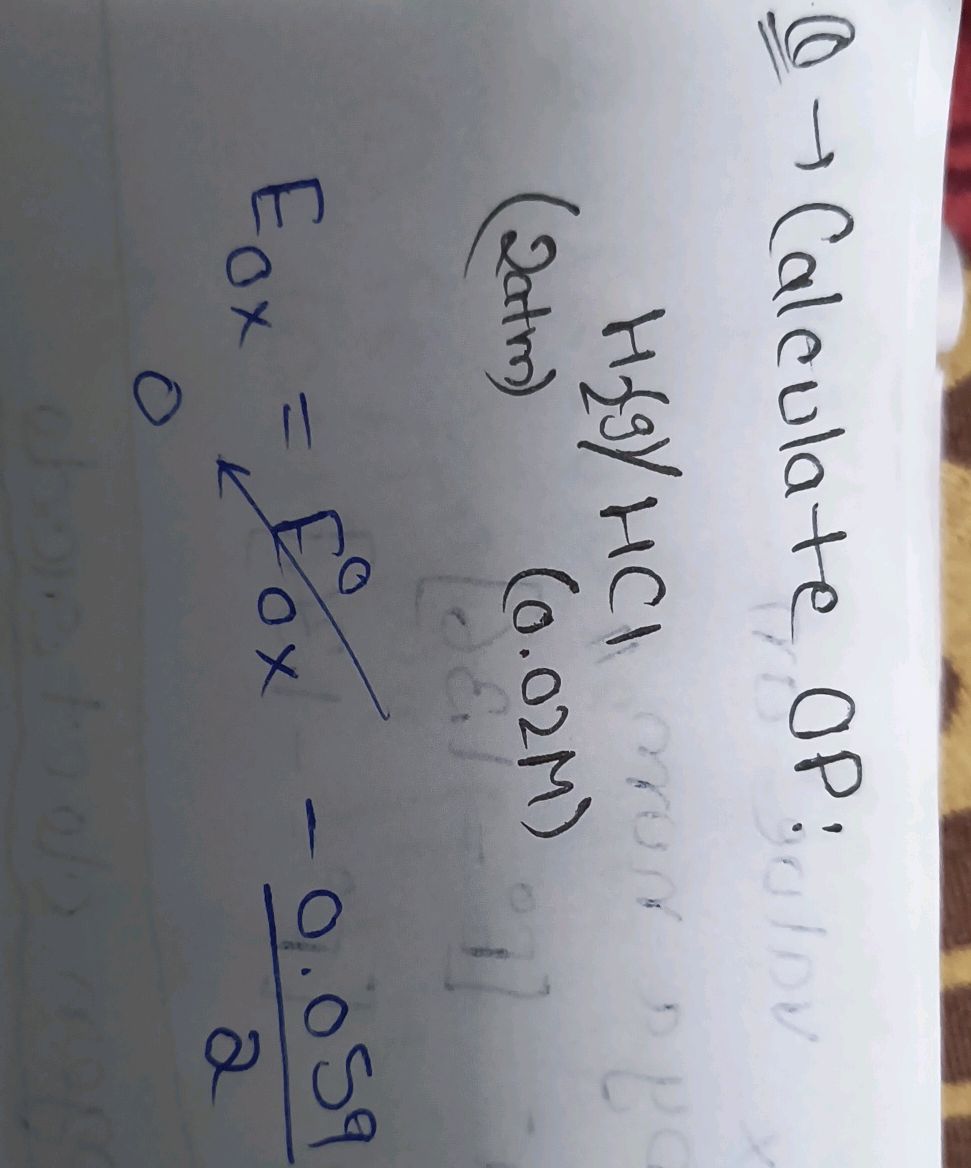 Q → Calculate OP:
H2(g)/HCl
(2atm) (0.02M)
Eox = E°ox - 0.059
0 2